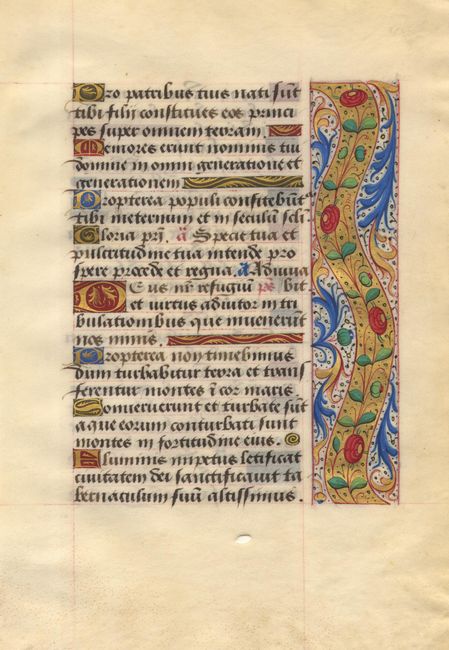 Pro patribus tuis nati sūt
tibi filij constitues eos princi
pes super omnem terram.
Memores erunt nominis tu
domine in omni generatione et
generationem
Propterea populi confitebūt
tibi ineternum et in seculūm scl̄i
Gloria pr̄i. ā Specie tua et
pulcritudine tua intende pro
spere procede et regna. ā Adiuva
Deus nr̄ refugiū ps bit
et virtus adiutor in tri
bulationibus que invenerūt
nos nimis.
Propterea non timebimus
dum turbabitur terra et trans
ferentur montes ī cor maris
Sonuerunt et turbate sūt
aque eorum conturbati sunt
montes in fortitudine eius.
Fluminis impetus letificat
civitatem dei sanctificavit ta
bernaculum suū altissimus.